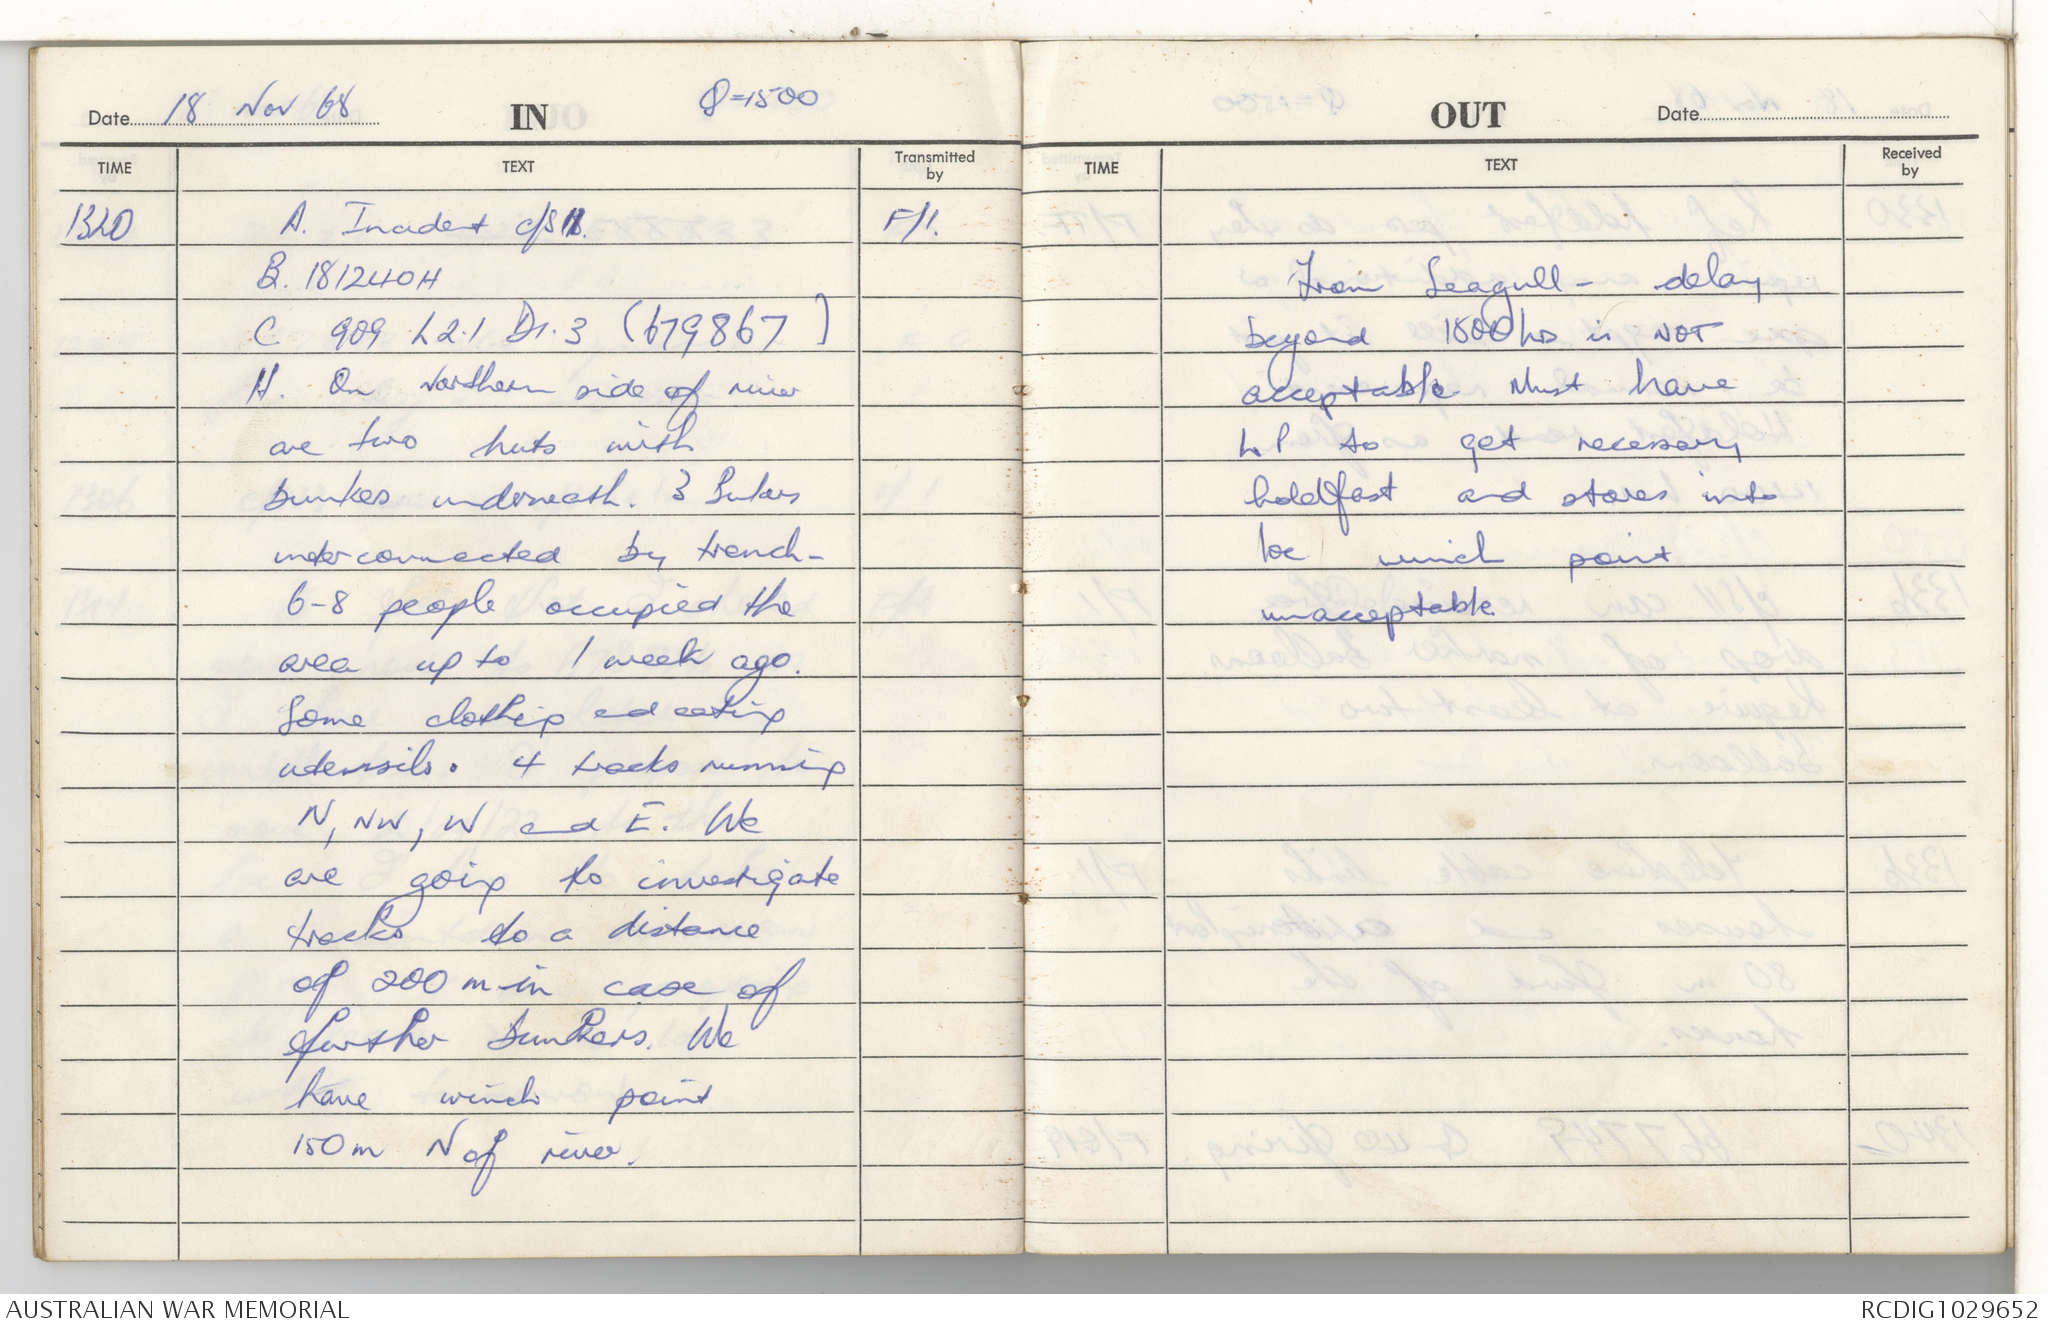 Date 18 Nov 68 IN Q=1500
TIME TEXT Transmitted by
1320 A. Incident c/s 11. F/1.
B. 181240H
C 909 L2.1 D1.3 (679867)
H. On Northern side of river
are two huts with
bunkes underneath. 3 bunkers
inter connected by trench-
6-8 people occupied the
area up to 1 week ago.
Some clothing and eating
utensils. 4 tracks running
N, NW, W and E. We
are going to investigate
tracks to a distance
of 200 m in case of
further bunkers. We
have winch point
150m N of river.
OUT Date
TIME TEXT Received by
From Seagull - delay
beyond 1500 hrs is NOT
acceptable Must have
LP to get necessary
holdfast and stores into
loc winch point
unacceptable.
AUSTRALIAN WAR MEMORIAL RCDIG1029652